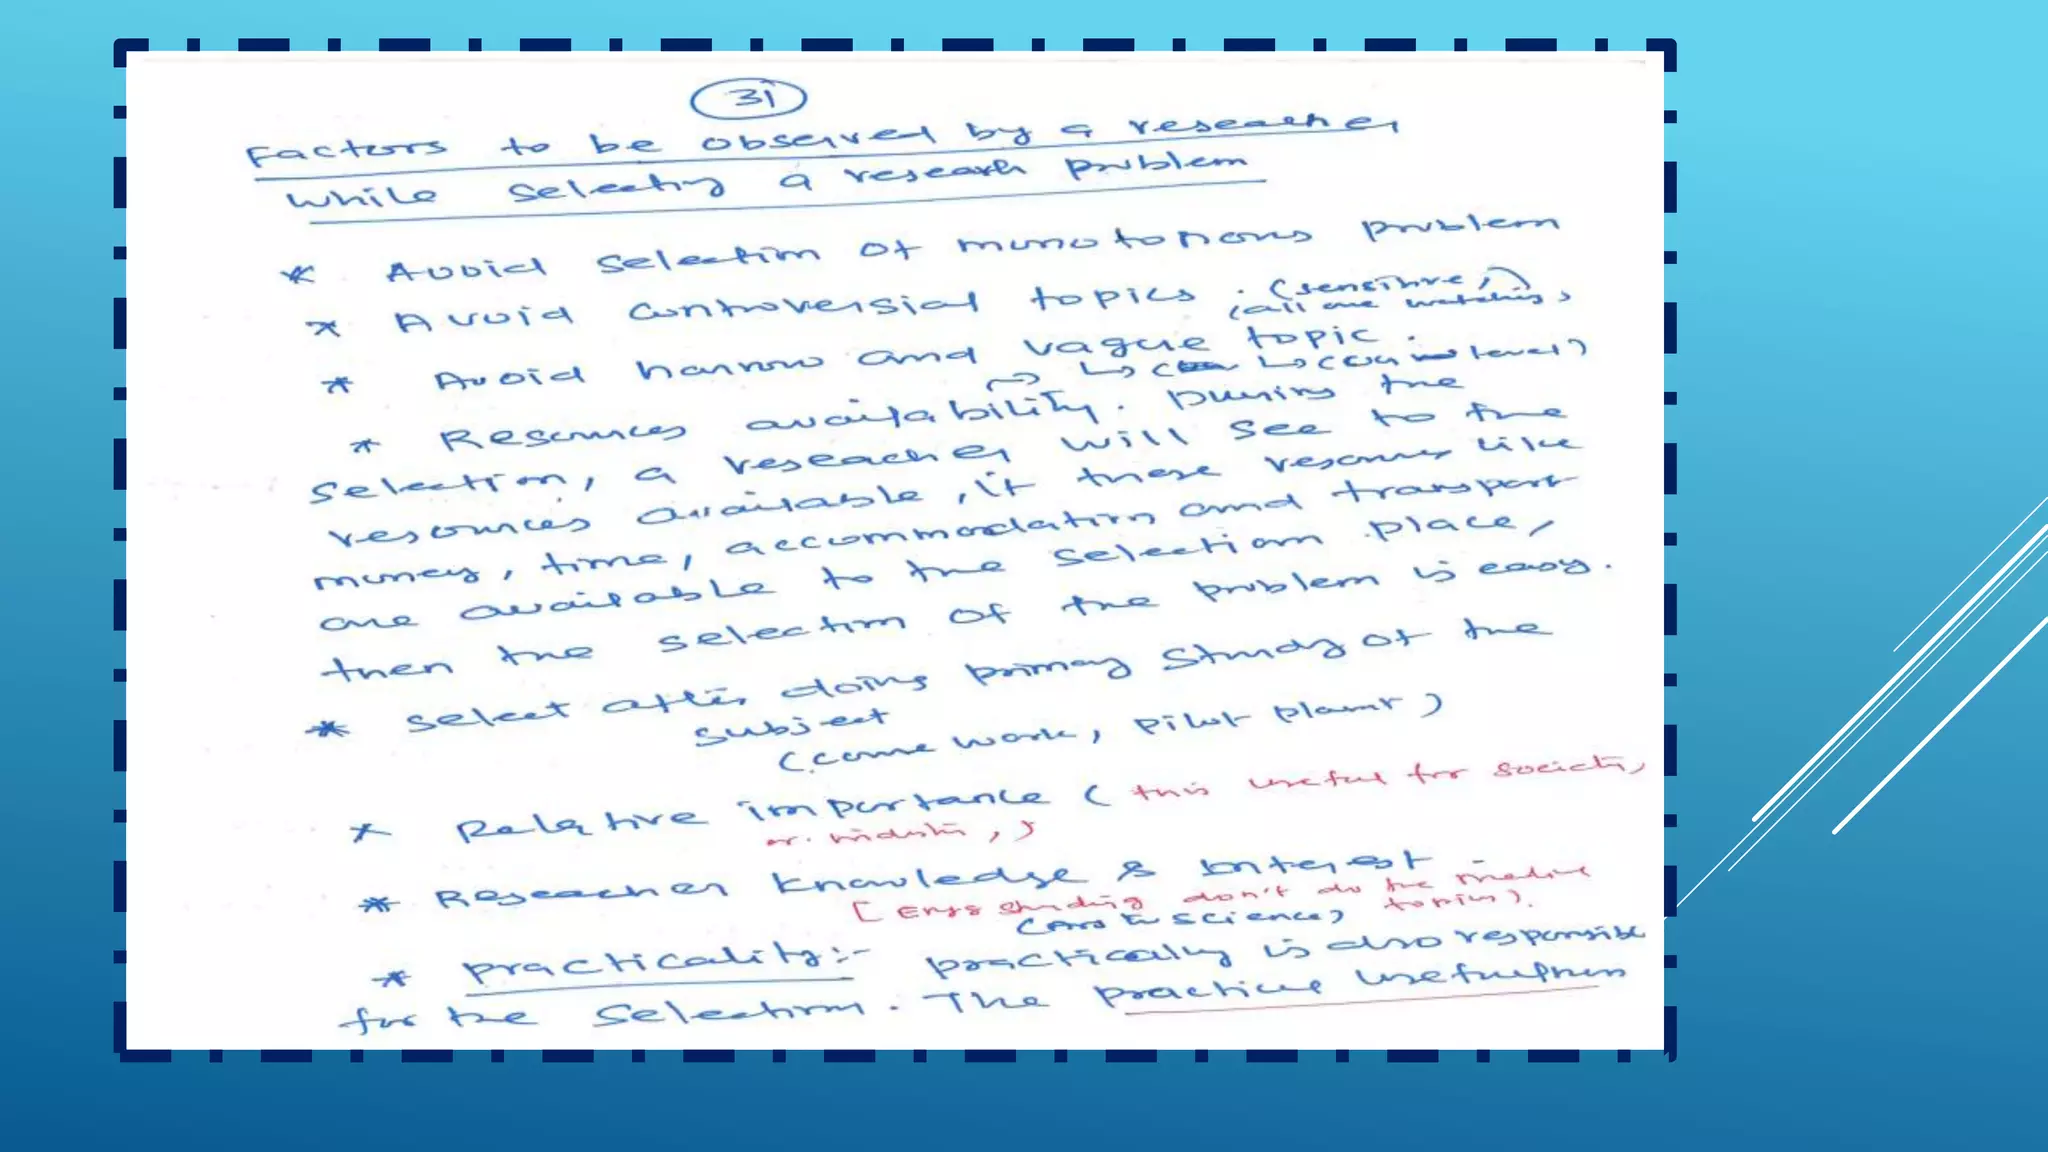 31
Factors to be observed by a researcher
while selecting a research problem
* Avoid selection of monotonous problem
* Avoid controversial topics. (sensitive,)
(all are watching)
* Avoid narrow and vague topic.
level)
* Resources availability. During the
selection, a researcher will see to the
resources available, if these resources like
money, time, accommodation and transport
are available to the selection place,
then the selection of the problem is easy.
* select after doing primary study of the
subject
(course work, pilot plant)
* Relative importance (this useful for society,
or industri,)
* Researcher knowledge & Interest
[Engg studing don't do the
topics).
science)
* practicality:- practically is also responsible
for the selection. The practical usefulness